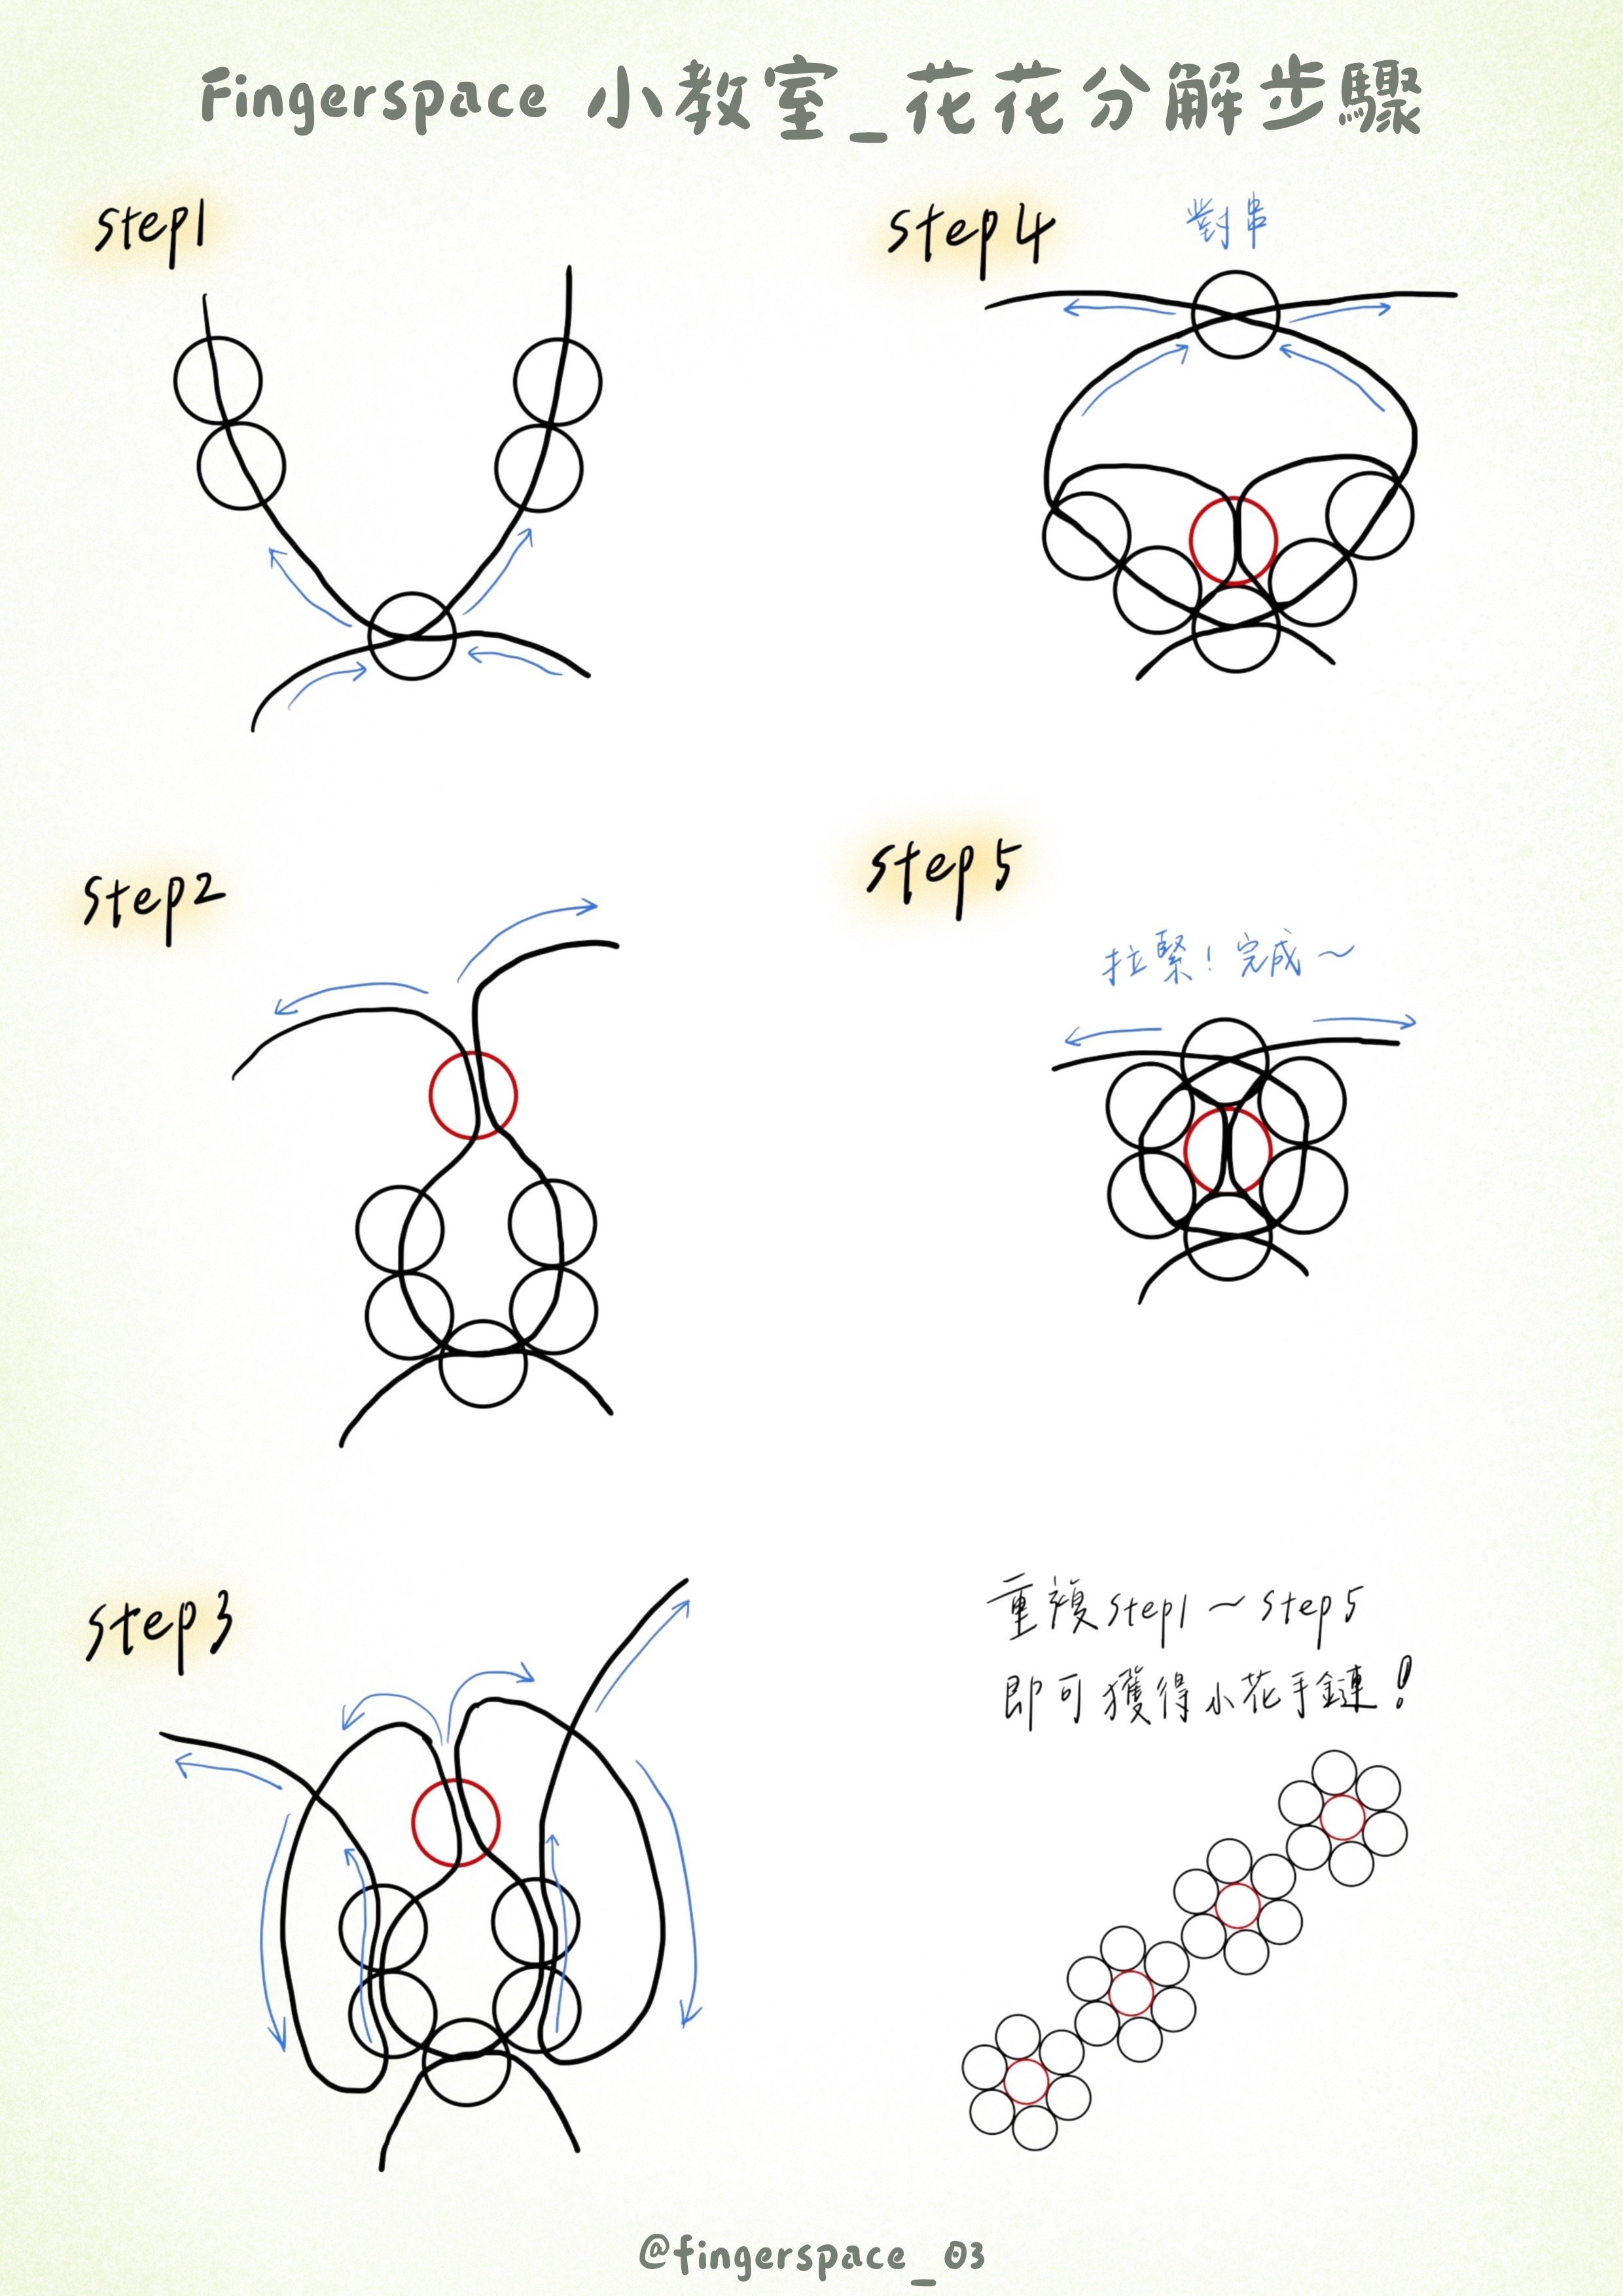 Fingerspace 小教室_花花分解步驟
Step1
Step2
Step3
Step4
對串
Step5
拉緊！完成～
重複Step1～Step5
即可獲得小花手鏈！
@fingerspace_03